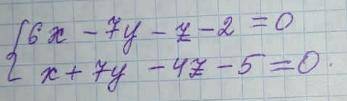 6x - 7y - z - 2 = 0
x + 7y - 4z - 5 = 0.